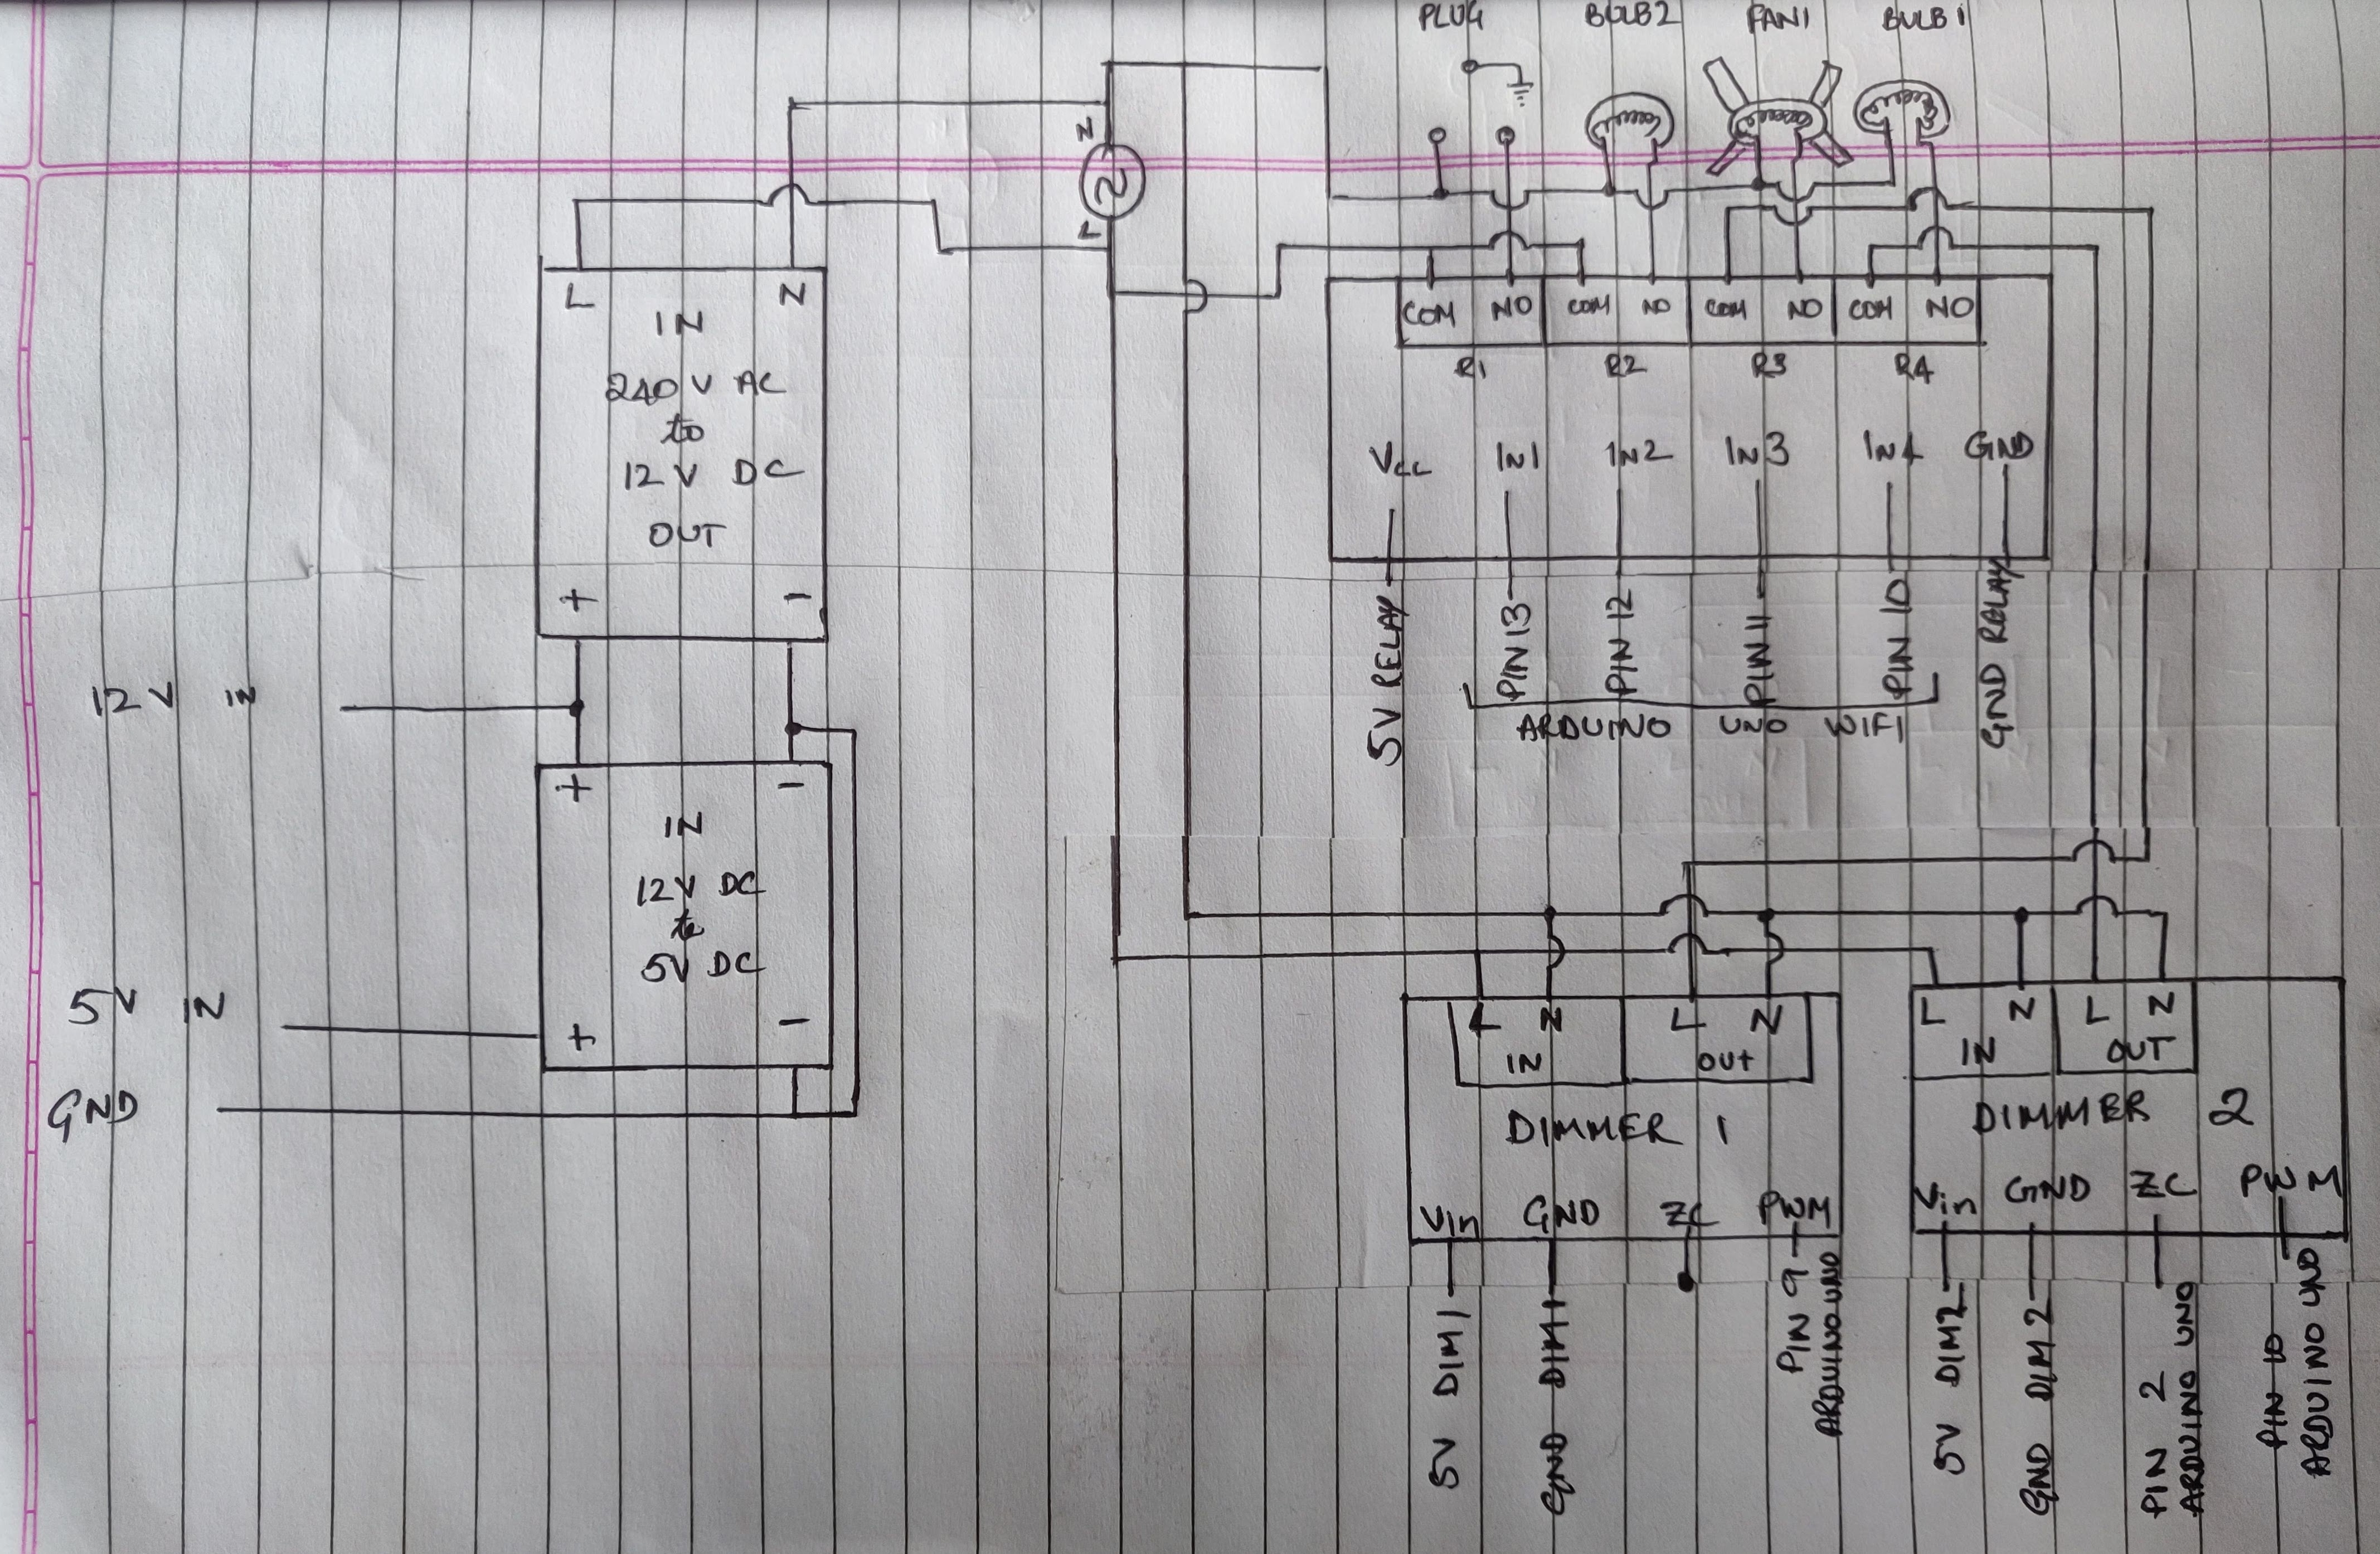 PLUG BULB2 FAN1 BULB1
N
L
L N
IN
240 V AC
to
12 V DC
OUT
+ -
12 V IN
+ -
IN
12V DC
to
5V DC
5V IN
+ -
GND
COM NO COM NO COM NO COM NO
R1 R2 R3 R4
Vcc IN1 IN2 IN3 IN4 GND
5V RELAY
PIN 13
PIN 12
PIN 11
PIN 10
GND RELAY
ARDUINO UNO WIFI
L N L N
IN OUT
DIMMER 1
Vin GND ZC PWM
5V DIM1
GND DIM1
PIN 9
ARDUINO UNO
L N L N
IN OUT
DIMMER 2
Vin GND ZC PWM
5V DIM2
GND DIM2
PIN 2
ARDUINO UNO
PIN 10
ARDUINO UNO